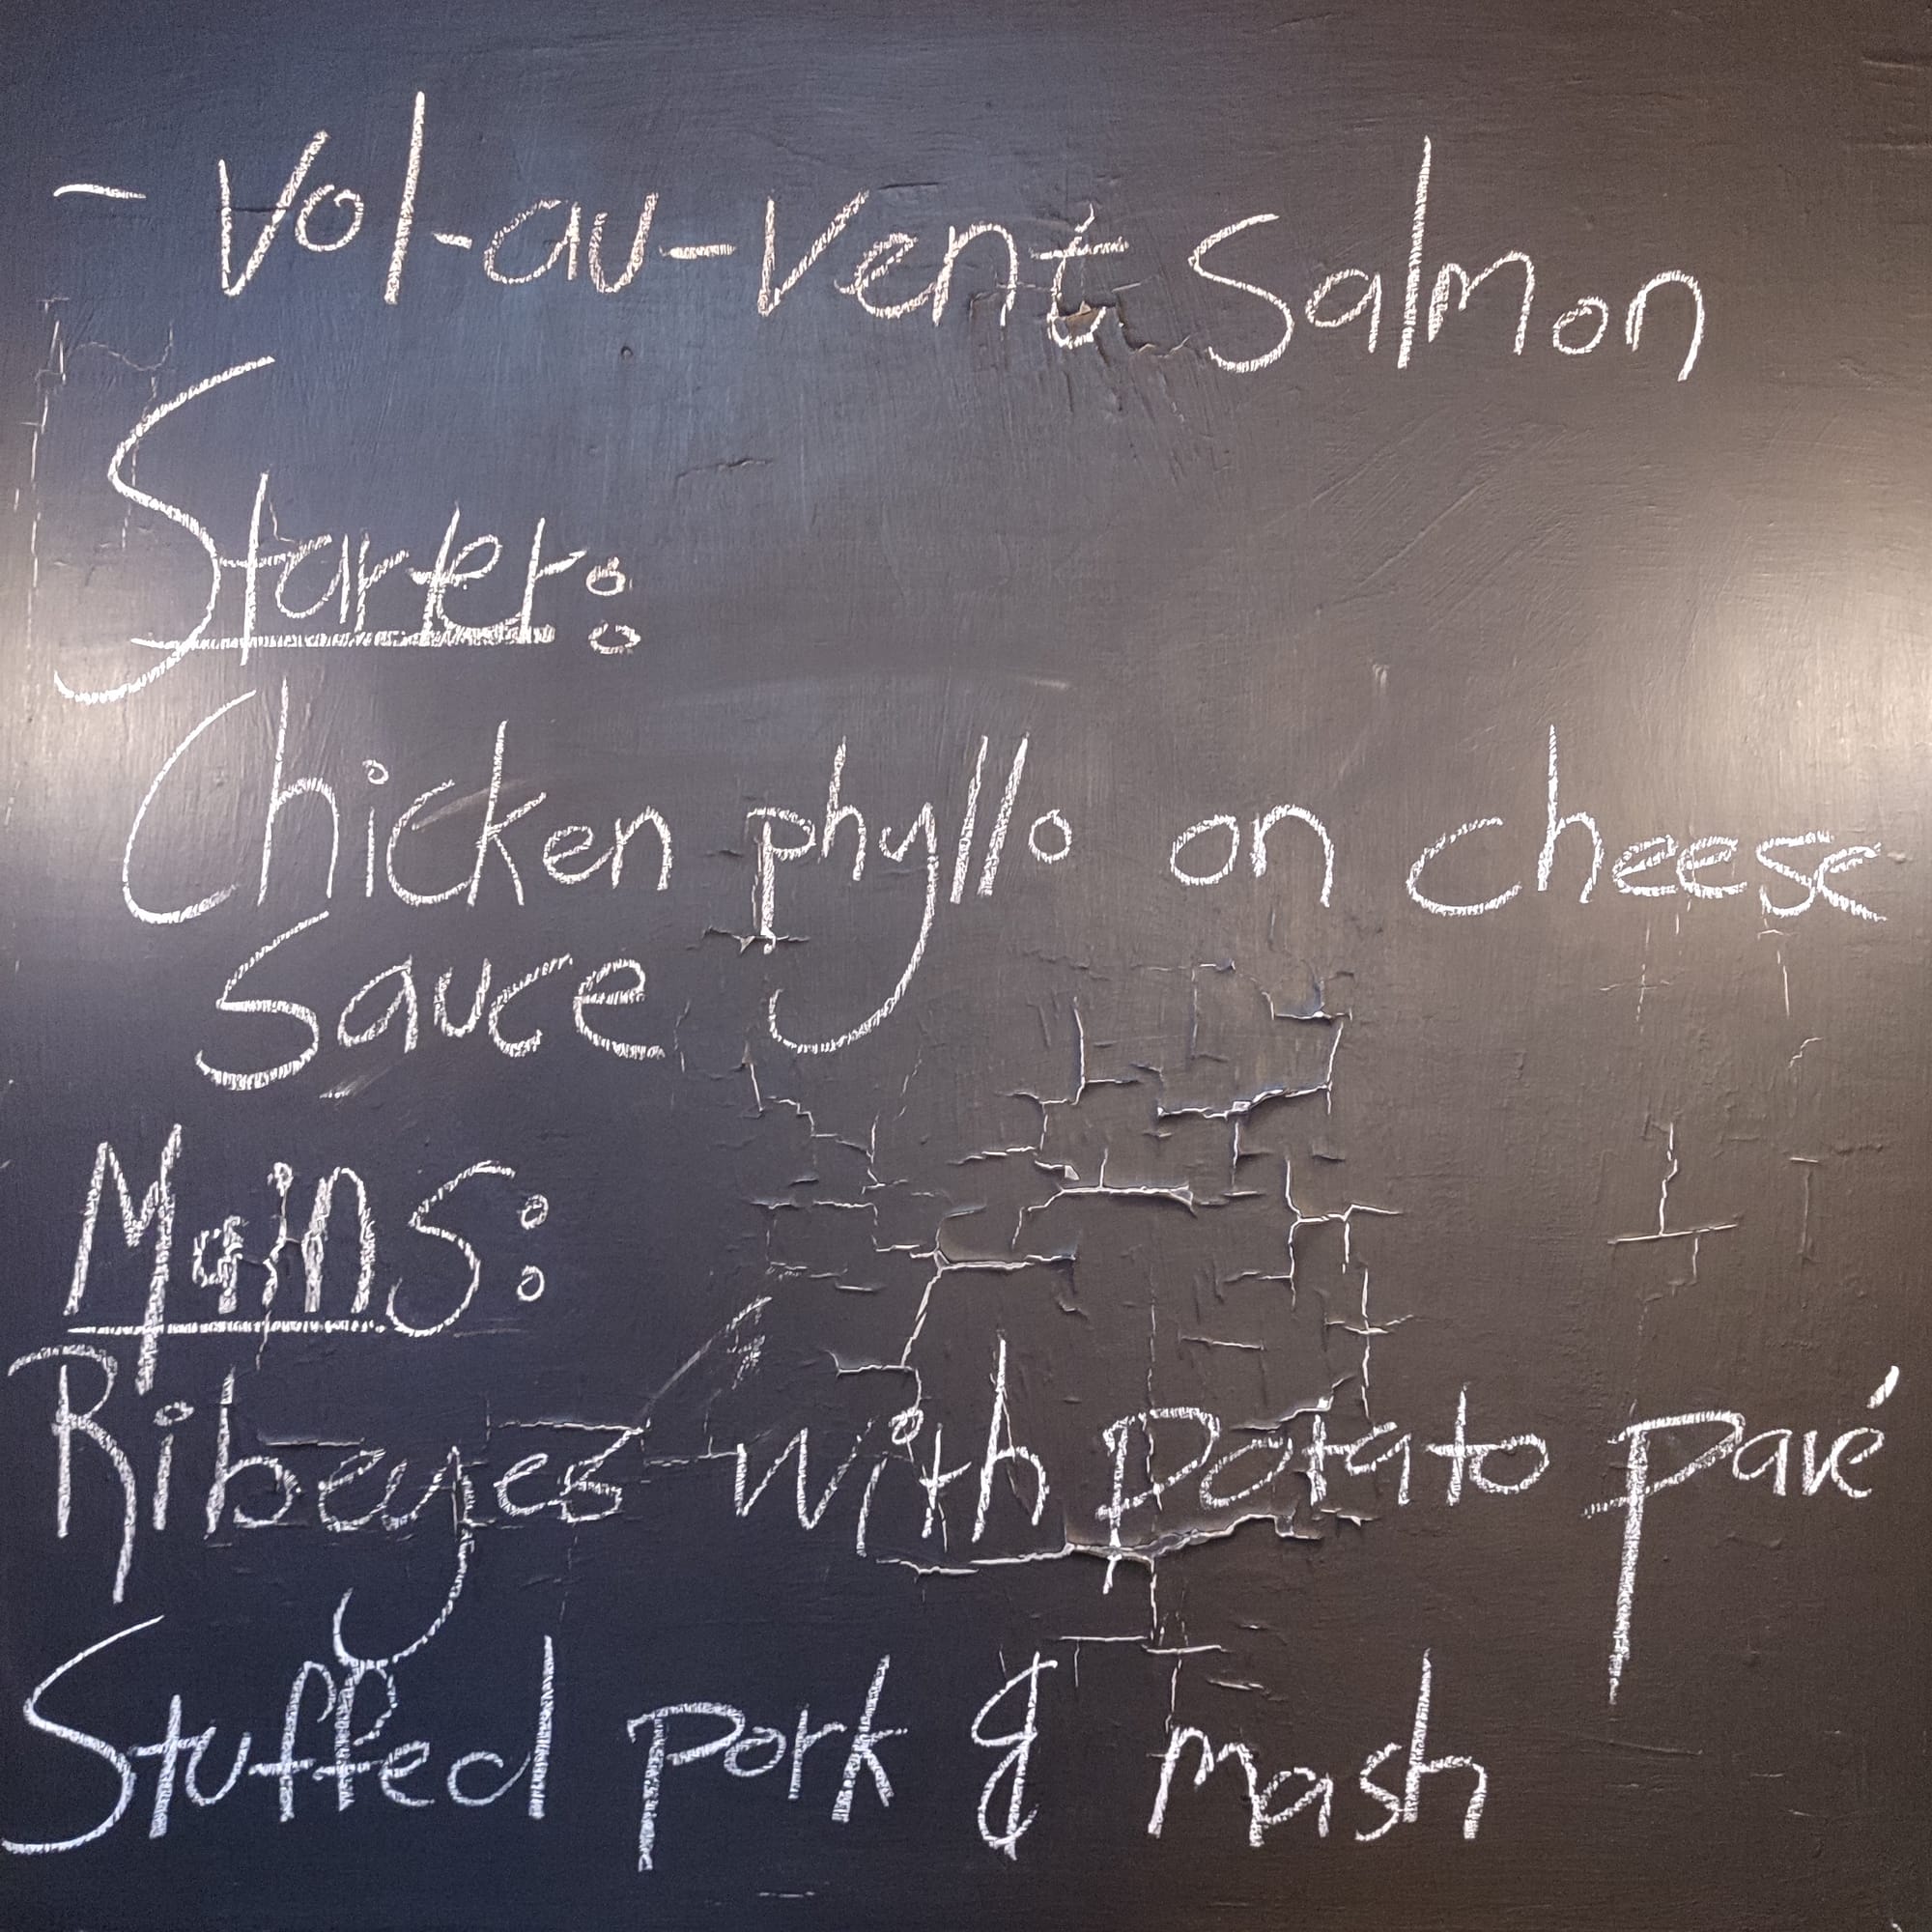 - Vol-au-vent Salmon
Starter:
Chicken phyllo on cheese
sauce
Mains:
Ribeyes with potato pavé
Stuffed pork & mash